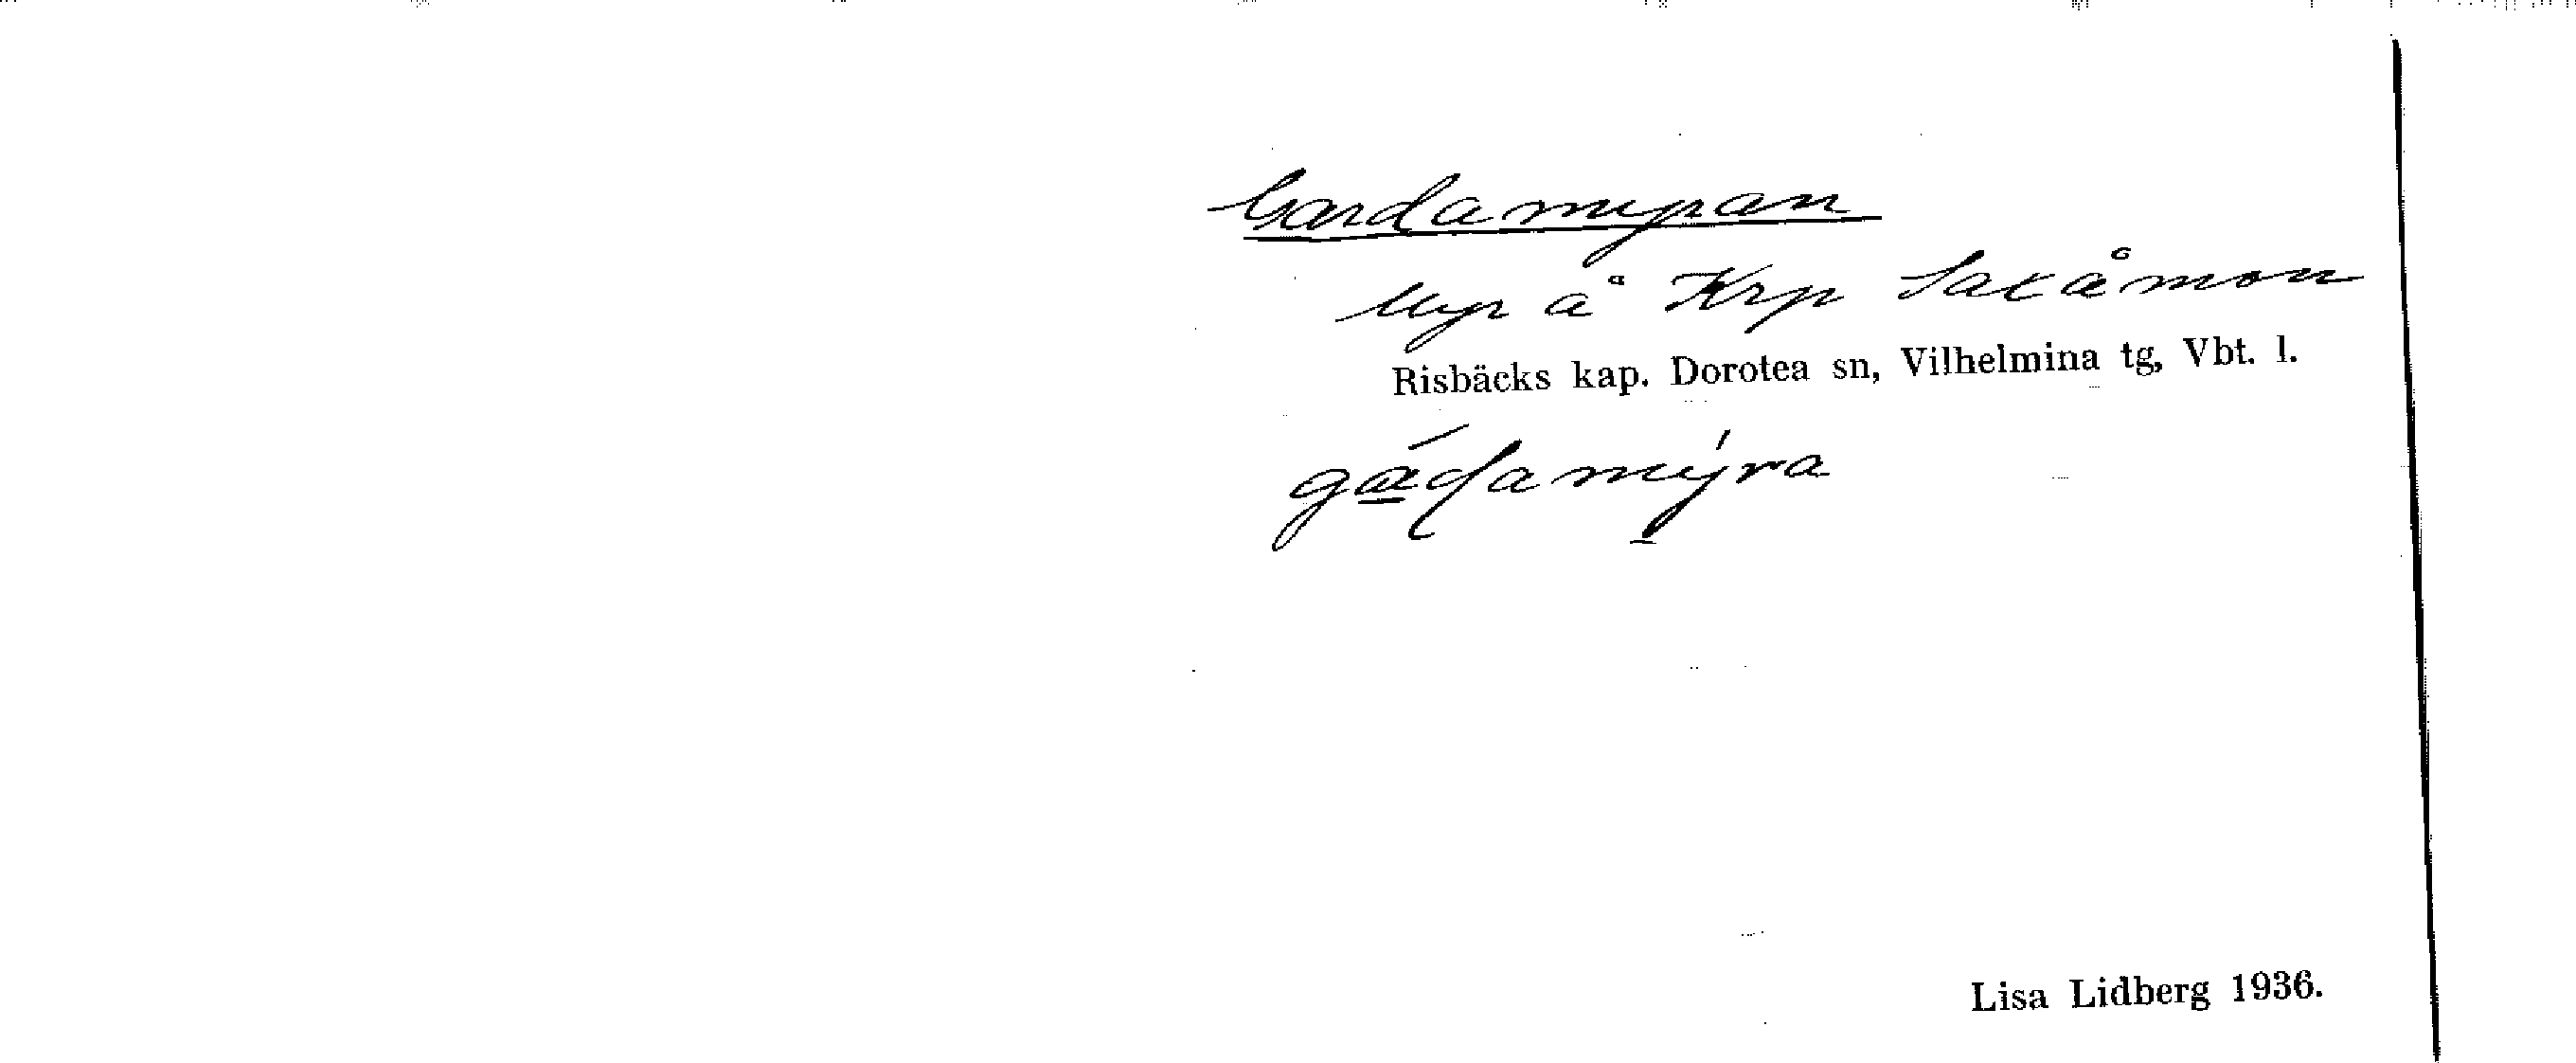 Gardamyran
Myr å Krp Saxåmon
Risbäcks kap. Dorotea sn, Vilhelmina tg, Vbt. l.
gáɖamýra
Lisa Lidberg 1936.